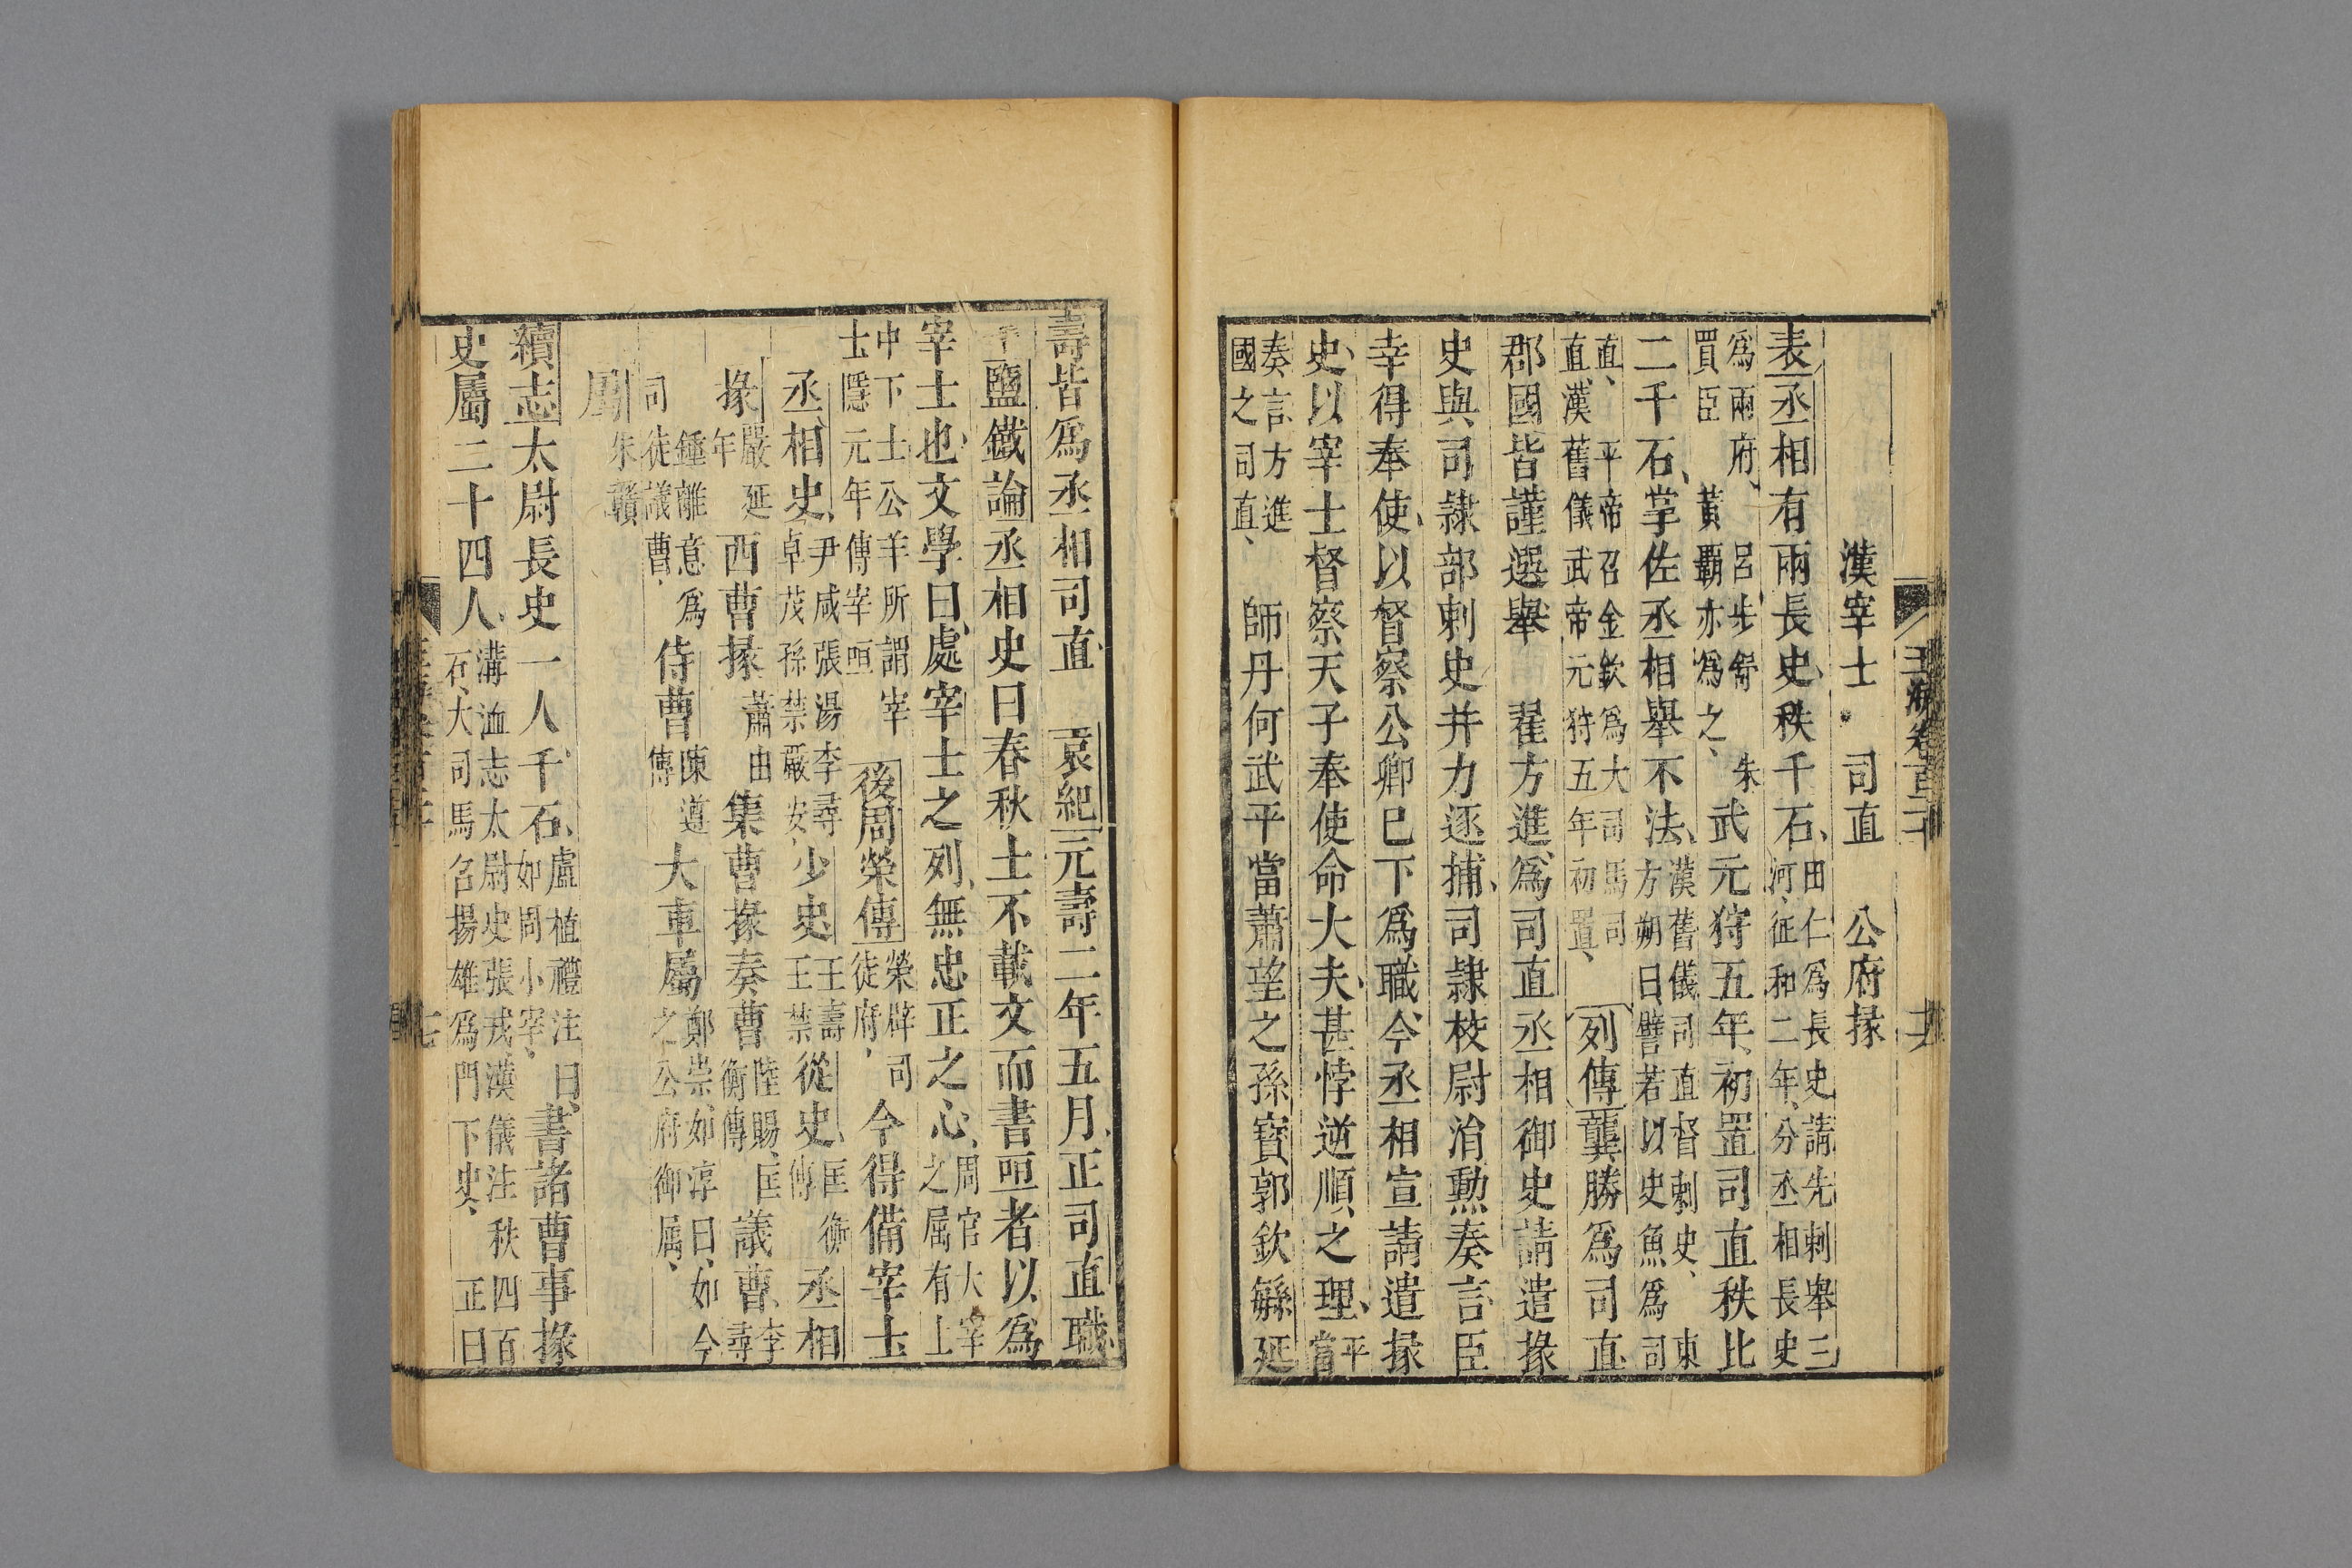 玉海卷百二十
漢宰士 司直 公府掾
表丞相有兩長史、秩千石、田仁爲長史請先刺舉三河、征和二年、分丞相長史
爲兩府、呂步舒 朱買臣 黃霸亦爲之、武元狩五年、初置司直秩比
二千石、掌佐丞相舉不法、漢舊儀司直督刺史、東方朔曰譬若以史魚爲司
直、平帝召金欽爲大司馬司直漢舊儀武帝元狩五年初置、列傳龔勝爲司直
郡國皆謹選舉 翟方進爲司直丞相御史請遣掾
史與司隷部刺史并力逐捕、司隷校尉涓勲奏言臣
幸得奉使、以督察公卿已下爲職、今丞相宣請遣掾
史、以宰士督察天子奉使命大夫、甚悖逆順、之理、平當
奏言方進國之司直、師丹何武平當蕭望之孫寳郭欽緜延
壽皆爲丞相司直 哀紀元壽二年五月、正司直職
鹽鐵論丞相史曰春秋士不載文而書咺者以爲
宰士也、文學曰、處宰士之列、無忠正之心、周官大宰之屬有上
中下士公羊所謂宰士隱元年傳宰咺 後周榮傳榮辟司徒府、今得備宰士
丞相史、尹咸張湯李尋卓茂孫禁嚴安、少史王壽王禁從史、匡衡傳丞相
掾嚴延年西曹掾蕭由集曹掾奏曹陸賜、匡衡傳議曹、李尋
鍾離意爲司徒議曹、侍曹陳遵傳大車屬鄭崇、如淳曰、如今之公府御屬、
屬朱贛
續志太尉長史一人千石、盧植禮注曰、如周小宰、書諸曹事掾
史屬二十四人、溝洫志太尉史張戎、漢儀注秩四百石、大司馬召揚雄爲門下史、正曰